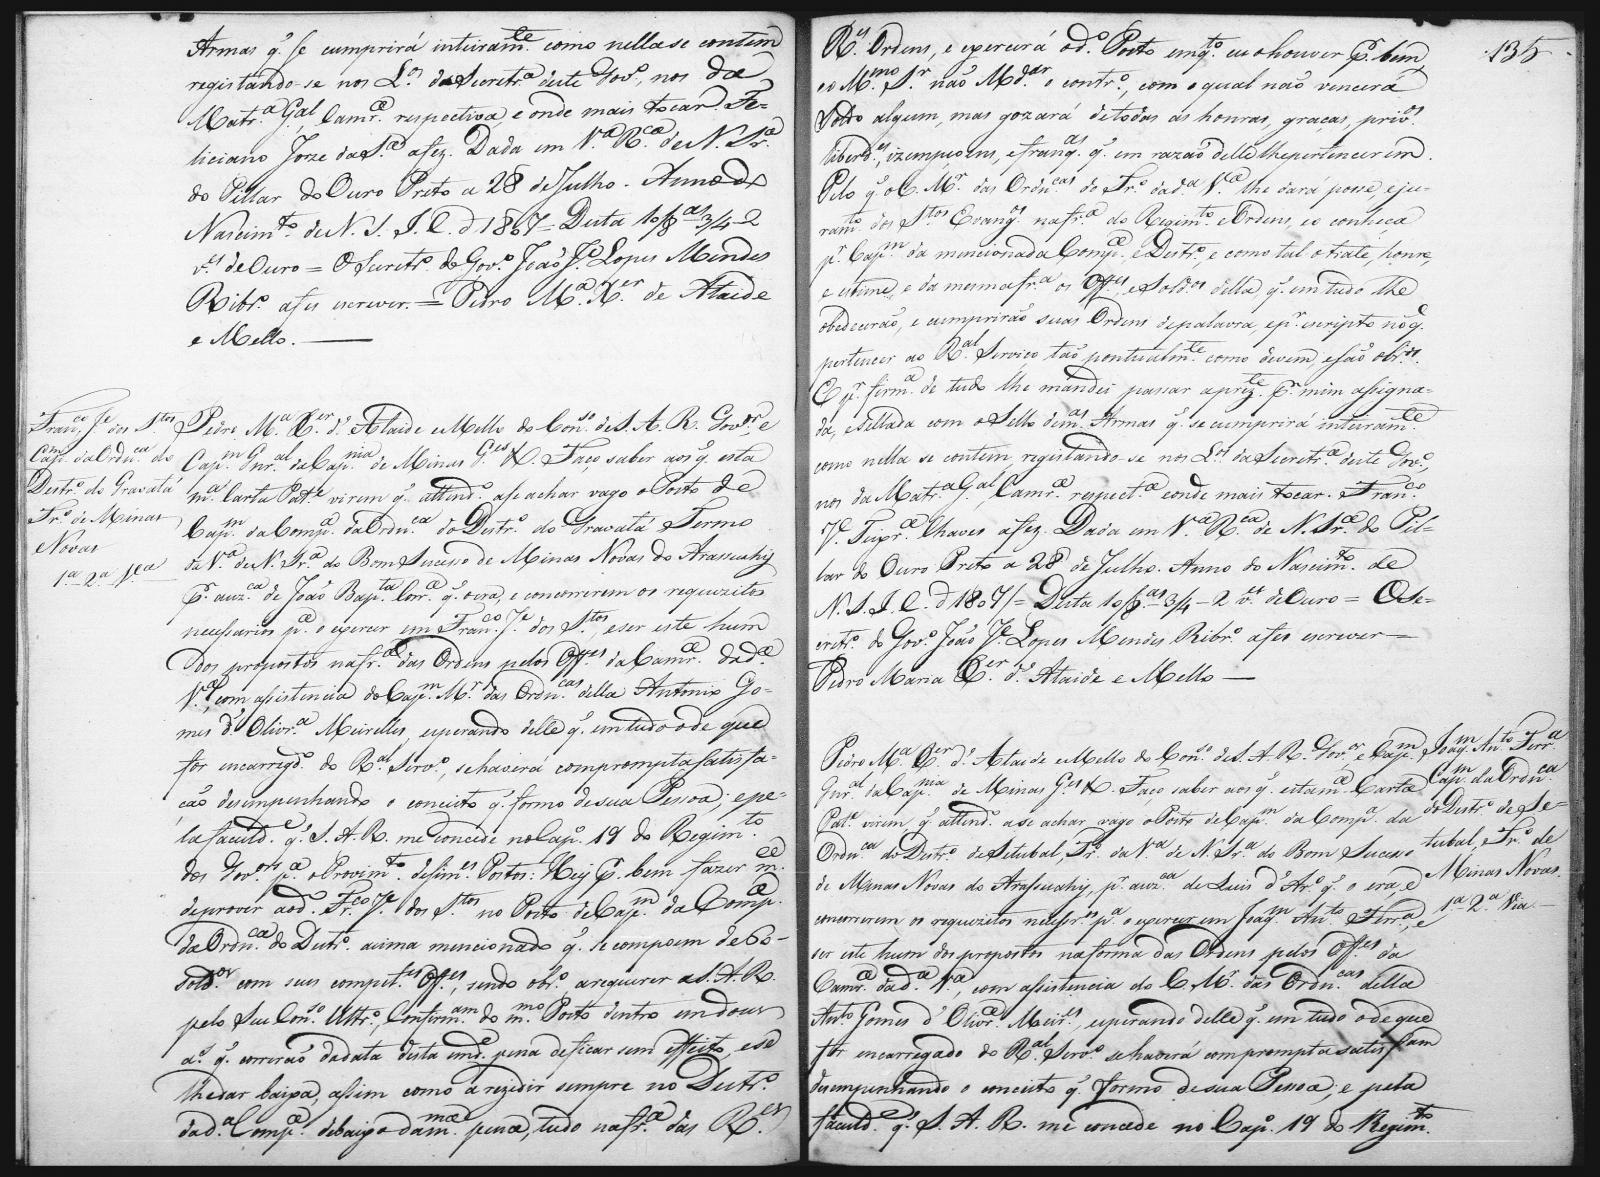 Armas q.' se cumprirá inteiram.te como nella se contem
registando-se nos L.os da Secretr.a deste Gov.o, nos da
Matr.a G.al, Camr.a respectiva, e onde mais tocar. Fe=
liciano Joze da S.a afez. Dada em V.a R.ca de N. Sr.a
do Pillar do Ouro Preto a 28 de Julho. Anno do
Nascim.to de N. S. J. C. d 1807 = Desta 10/8.as 3/4 - 2
v.es de Ouro = O Secretr.o do Gov.o João J.e Lopes Mendes
Ribr.o afes escrever. = Pedro M.a X.er de Ataide
e Mello. —
Fran.co J.e dos S.tos
Cap.m da Ordn.ca do
Destr.o do Gravatá
Tr.o de Minas
Novas
1.a 2.a V.ca
Pedro M.a X.er d' Ataide e Mello do Con.so de S. A. R. Gov.or, e
Cap.m Gnr.al da Cap.nia de Minas G.es &. Faço saber aos q.' esta
m.a Carta Pat.e virem q.' attend.o a se achar vago o Posto de
Cap.m da Comp.a da Ordn.ca do Destr.o do Gravatá Termo
da V.a de N. Sr.a do Bom Sucesso de Minas Novas do Arassuahy
P.r auz.ca de João Bap.ta Corr.a q.' o era, e concorrerem os requezitos
necessarios p.a o exercer em Fran.co J.e dos S.tos, e ser este hum
dos propostos na fr.a das Ordens pelos Off.es da Camr.a da d.a
V.a, com assistencia do Cap.m M.r das Ordn.cas della Antonio Go=
mes d' Olivr.a Meirelles, esperando delle q.' em tudo o de que
for encarreg.do do R.al Serv.o, se haverá com prompta satisfa=
ção desempenhando o conceito q.' formo de sua Pessoa; e pe=
la faculd.e q.' S. A. R. me concede no Cap.o 19 do Regim.to
dos Gov.ores p.a o Provim.to de sim.es Postos: Hey P.r bem fazer m.ce
de prover ao d.o Fr.co J.e dos S.tos no Posto de Cap.m da Comp.a
da Ordn.ca do Destr.o acima mencionado q.' se compoem de 60-
Sold.os com seus compet.es Off.es, sendo obr.o a requerer a S. A. R.
pelo Seu Con.so Ultr.o, Confirm.am do m.mo Posto dentro em dous
a.s q.' correrão da data desta em d.e pena de ficar sem effeito, e se
lhe dar baixa, assim como a rezidir sempre no Destr.o
da d.a Comp.a debaixo da m.ma pena, tudo na fr.a das R.es
135
R.es Ordens, e exercerá o d.o Posto emq.to eu o houver P.r bem
e o M.mo S.r não M.dar o contr.o, com o qual não vencerá
Soldo algum, mas gozará de todas as honras, graças, priv.os
liberd.es, izempçoens, e franq.as q.' em razão delle lhe pertencerem.
Pelo q.' o C. M.r das Ordn.cas do Tr.o da d.a V.a lhe dará posse, e ju=
ram.to dos S.tos Evang.os na fr.a do Regim.to e Ordens, e o conheça
p.r Cap.m da mencionada Comp.a, e Destr.o, e como tal o trate, honre,
e estime, e da mesma fr.a os Off.es, e Sold.os della q.' em tudo lhe
obedecerão, e cumprirão suas Ordens de palavra, e p.r escripto no q.'
pertencer ao R.al Serviço tão pontualm.te como devem, e são obr.os.
E p.r firm.a de tudo lhe mandei passar a prez.te P.r mim assigna=
da, e sellada com o Sello de m.as Armas q.' se cumprirá inteiram.te
como nella se contem, registando-se nos L.os da Secretr.a deste Gov.o,
nos da Matr.a G.al, Camr.a respect.a e onde mais tocar. Fran.co
J.e Teixr.a Chaves afez. Dada em V.a R.ca de N. Sr.a do Pil=
lar do Ouro Preto a 28 de Julho. Anno do Nascim.to de
N. S. J. C. d 1807 = Desta 10/8.as 3/4 - 2 v.es de Ouro = O Se=
cretr.o do Gov.o João J.e Lopes Mendes Ribr.o afes escrever =
Pedro Maria X.er d' Ataide e Mello —
Pedro M.a X.er d' Ataide e Mello do Con.so de S. A. R. Gov.or, e Cap.m
Gnr.al da Cap.nia de Minas G.es &. Faço saber aos q.' esta m.a Carta
Pat.e virem, q.' attend.o a se achar vago o Posto de Cap.m da Comp.a da
Ordn.ca do Destr.o de Setubal, Tr.o da V.a de N. Sr.a do Bom Sucesso
de Minas Novas do Arassuahy, p.r auz.ca de Luis d' Ar.o q.' o era, e
concorrerem os requezitos necessr.os p.a o exercer em Joaq.m An.to Ferr.a, e
ser este hum dos propostos na forma das Ordens pelos Off.es da
Camr.a da d.a V.a, com assistencia do C. M.r das Ordn.cas della
An.to Gomes d' Olivr.a Meir.es, esperando delle q.' em tudo o de que
for encarregado do R.al Serv.o se haverá com prompta satisfam
desempenhando o conceito q.' formo de sua Pessoa; e pela
faculd.e q.' S. A. R. me concede no Cap.o 19 do Regim.to
Joaq.m An.to Ferr.a
Cap.m da Ordn.ca
do Destr.o de Se=
tubal, e Tr.o de
Minas Novas.
1.a 2.a Via